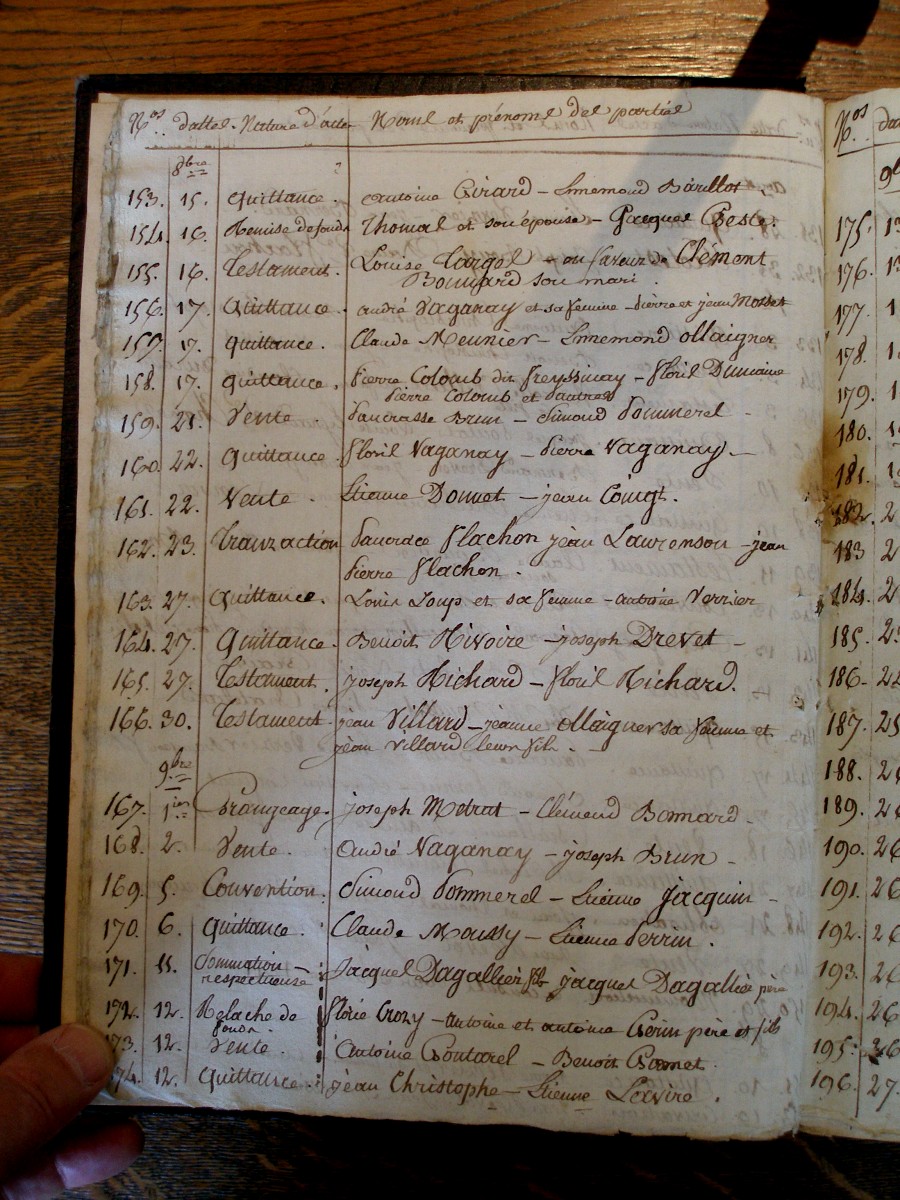 Nos dattes. Nature d'actes Noms et prénoms des parties
8bre
153. 15. Quittance. Antoine Girard - Ennemond Barillot.
154. 16. Remise de fonds Thomas et son épouse - Jacques Beste.
155. 16. Testament. Louise Targes - en faveur de Clément
Bonnard son mari.
156. 17. Quittance. André Vaganay et sa femme - Pierre et jean Mosset
157. 17. Quittance. Claude Meunier - Ennemond Maignier
158. 17. Quittance. Pierre Colomb dit Freyssinay - Floris Dumaine
Pierre Colomb et d'autres
159. 21. Vente. Pancrasse Brun - Simond Pommerel -
160. 22. Quittance. Floris Vaganay - Pierre Vaganay. -
161. 22. Vente. Etienne Donnet - jean Coingt.
162. 23. Tranzaction Pancrace Flachon jean Laurenson - jean
Pierre Flachon.
163. 27. Quittance. Louis Loup et sa femme - antoine Verrier
164. 27. Quittance. Benoit Rivoire - joseph Drevet -
165. 27. Testament. joseph Richard - Floris Richard.
166. 30. Testament. jean Villard - jeanne Maignier sa femme et
jean Villard leur fils. -
9.bre
167. 1er Grangeage. joseph Metrat - Clémend Bonnard -
168. 2. Vente. André Vaganay - joseph Brun -
169. 5. Convention. Simond Pommerel - Etienne jacquin -
170. 6. Quittance. Claude Moussy - Etienne Perrin.
171. 11. Sommation respectueuse Jacques Dagallier fils jacques Dagallier père
172. 12. Relache de fonds. Florie Crozy - antoine et antoine Gerin père et fils
173. 12. Vente. Antoine Goutarel - Benoit
174. 12. Quittance. jean Christophe - Etienne
Nos
175. 13
176. 13
177. 1
178. 1
179. 1
180. 1
181.
182. 2
183 2
184. 2
185. 25
186. 2
187. 25
188. 26
189. 26
190. 26
191. 26
192. 26
193. 26
194. 26
195. 26
196. 27.